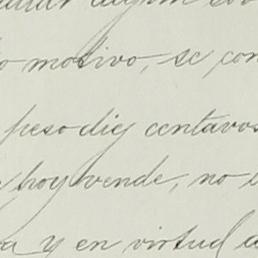 motivo, se con
peso diez centavos
hoy vende, no
y en virtud